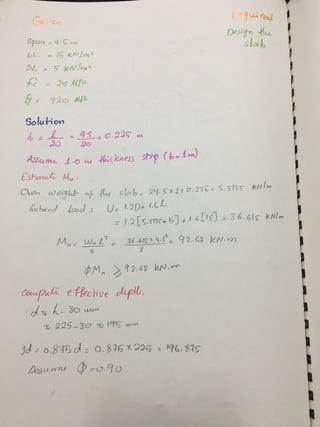 Given
Required
Design the slab
Span = 4.5 m
LL = 15 KN/m²
DL = 5 KN/m²
fc' = 25 MPa
fy = 420 MPa
Solution
h = L/20 = 4.5/20 = 0.225 m
Assume 1.0 m thickness strip (b=1m)
Estimate Mu:
Own weight of the slab = 24.5 x 1 x 0.225 = 5.5125 kN/m
factored Load : U = 1.2D + 1.6L
= 1.2[5.5125+5] + 1.6[15] = 36.615 kN/m
Mu = Wu L²/8 = 36.615 x 4.5²/8 = 92.68 kN.m
ϕMn ≥ 92.68 kN.m
Compute effective depth:
d ≈ h - 30 mm
≈ 225-30 ≈ 195 mm
Jd = 0.875 d = 0.875 x 225 = 196.875
Assume ϕ = 0.90